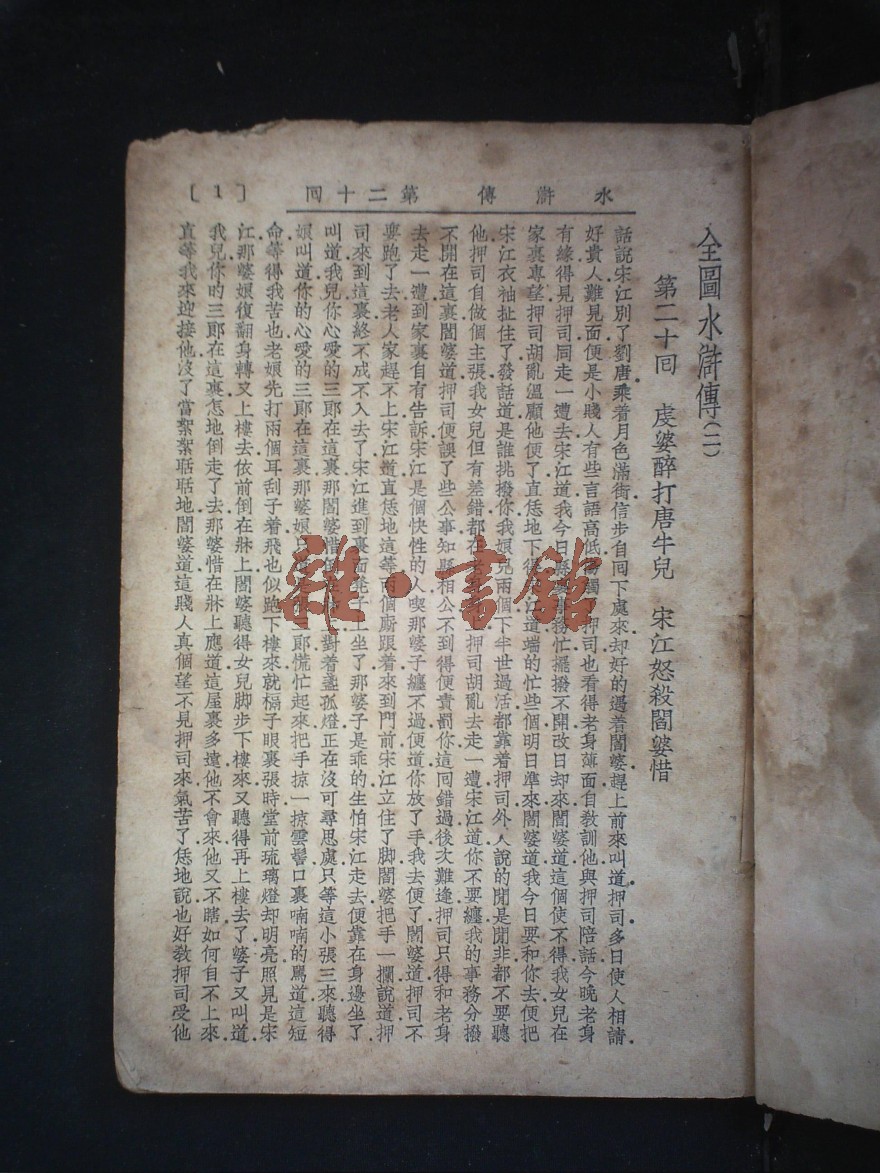 水滸傳 第二十回
[1]
全圖水滸傳(二)
第二十回 虔婆醉打唐牛兒 宋江怒殺閻婆惜
話說宋江別了劉唐乘着月色滿街信步自回下處來却好的遇着閻婆趕上前來叫道押司多日使人相請
好貴人難見面便是小賤人有些言語高低傷觸押司也看得老身薄面自敎訓他與押司陪話今晚老身
有緣得見押司同走一遭去宋江道我今日縣裏事務忙擺撥不開改日却來閻婆道這個使不得我女兒在
家裏專望押司胡亂溫顧他便了直恁地下得宋江道端的忙些個明日準來閻婆道我今日要和你去便把
宋江衣袖扯住了發話道是誰挑撥你我娘兒兩個下半世過活都靠着押司外人說的閒是閒非都不要聽
他押司自做個主張我女兒但有差錯都在老身身上押司胡亂去走一遭宋江道你不要纏我的事務分撥
不開在這裏閻婆道押司便誤了些公事知縣相公不到得便責罰你這回錯過後次難逢押司只得和老身
去走一遭到家裏自有告訴宋江是個快性的人喫那婆子纏不過便道你放了手我去便了閻婆道押司不
要跑了去老人家趕不上宋江道直恁地這等兩個廝跟着來到門前宋江立住了脚閻婆把手一攔說道押
司來到這裏終不成不入去了宋江進到裏面凳子上坐了那婆子是乖的生怕宋江走去便靠在身邊坐了
叫道我兒你心愛的三郞在這裏那閻婆惜倒在牀上對着盞孤燈正在沒可尋思處只等這小張三來聽得
娘叫道你的心愛的三郞在這裏那婆娘只道是張三郞慌忙起來把手掠一掠雲髻口裏喃喃的罵道這短
命等得我苦也老娘先打兩個耳刮子着飛也似跑下樓來就槅子眼裏張時堂前琉璃燈却明亮照見是宋
江那婆娘復翻身轉又上樓去依前倒在牀上閻婆聽得女兒脚步下樓來又聽得再上樓去了婆子又叫道
我兒你的三郞在這裏怎地倒走了去那婆惜在牀上應道這屋裏多遠他不會來他又不瞎如何自不上來
直等我來迎接他沒了當絮絮聒聒地閻婆道這賤人真個望不見押司來氣苦了恁地說也好敎押司受他
雜·書館